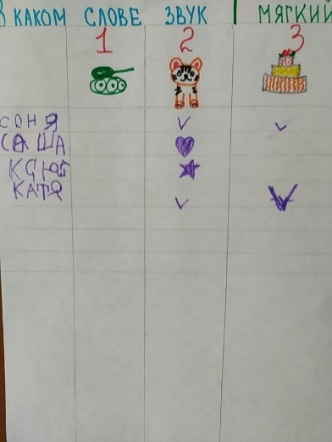 В КАКОМ СЛОВЕ ЗВУК МЯГКИЙ
1 2 3
СОНЯ
САША
КСЮША
КАТЯ